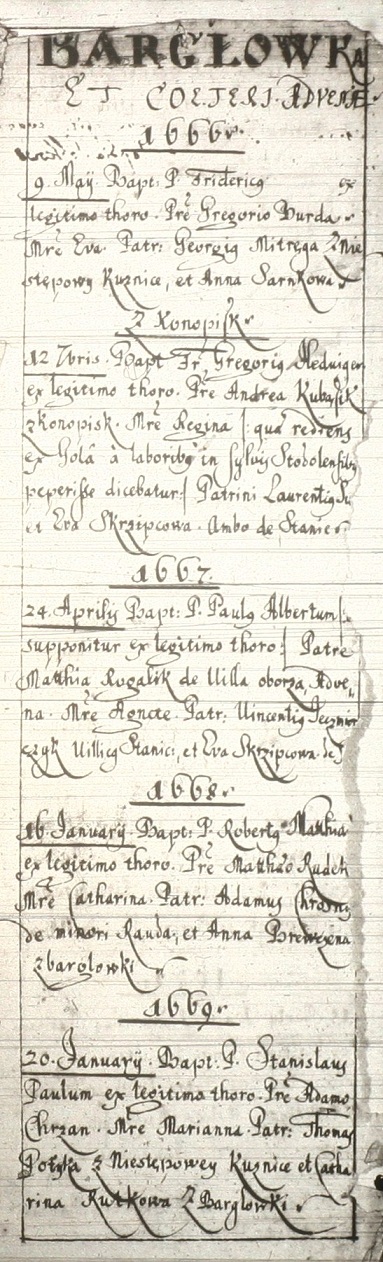 BARGŁOWKA
ET COETERI ADVENÆ
1666
9. Maÿ. Bapt: P. Fridericg ex
legitimo thoro. Pre Gregorio Burda
Mre Eva. Patr: Georgig Mitręga Znie
stępowy Kuznice, et Anna Sarnkowa
Z Konopisk
12 7bris. Bapt Fr Gregorig
ex legitimo thoro. Pre Andrea Kubasik
zkonopisk. Mre Regina |: qua rediens
ex Hola a laboribg in sylvis
peperisse dicebatur :| Patrini Laurentig
et Eva Skrzipcowa. Ambo de Stanic
1667.
24. Aprilis Bapt: P. Paulg Albertum |:
supponitur ex legitimo thoro :| Patre
Matthia Rogalik de Villa oborza, Adve,
na. Mre Agnete. Patr: Vincentig
czyk Villicg Stanic:, et Eva Skrzipcowa.
1668.
16. January. Bapt: P. Robertg Matthia
ex legitimo thoro. Pre Matthæo Rudek
Mre Catharina. Patr: Adamus
de minori Rauda, et Anna
zbarglowki
1669.
20. Januarÿ. Bapt: P. Stanislaus
Paulum ex legitimo thoro. Pre Adamo
Chrzan. Mre Marianna. Patr: Thomas
Potyka z Niestępowey Kuznice et Catha
rina Rutkowa Z Barglowki